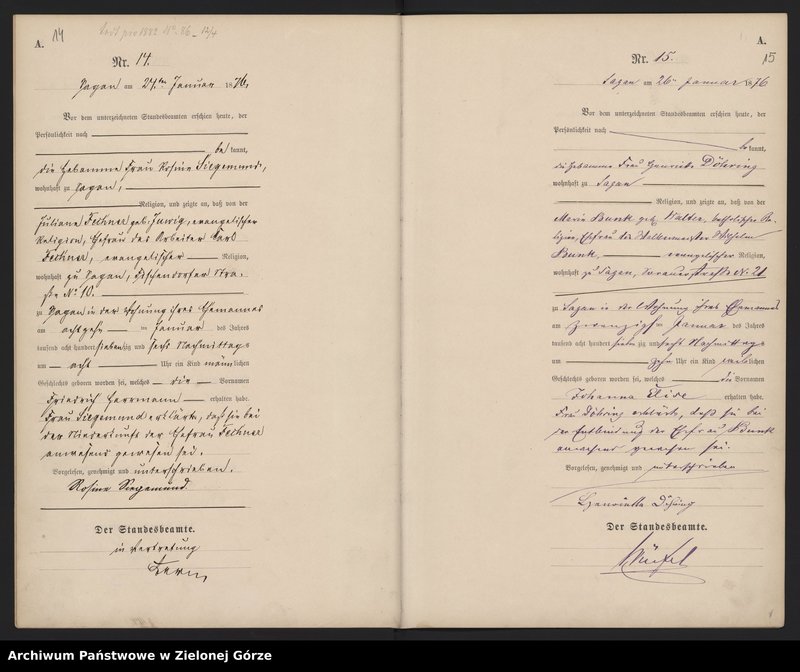 A.
14
Nr. 14.
Sagan am 24ten Januar 1876,
Vor dem unterzeichneten Standesbeamten erschien heute, der
Persönlichkeit nach
be kannt,
die Hebamme Frau Rosine Siegemund,
wohnhaft zu Sagan,
Religion, und zeigte an, daß von der
Juliane Fechner geb. evangelischer
Religion, Ehefrau des Arbeiter Karl
Fechner, evangelischer Religion,
wohnhaft zu Sagan, Fischendorfer Stra-
ße No 10.
zu Sagan in der Wohnung ihres Ehemannes
am achtzehn ten Januar des Jahres
tausend acht hundert siebenzig und sechs Nachmittags
um acht Uhr ein Kind männlichen
Geschlechts geboren worden sei, welches die Vornamen
Friedrich Herrmann erhalten habe.
Frau Siegemund erklärte, daß sie bei
der Niederkunft der Ehefrau Fechner
anwesend gewesen sei.
Vorgelesen, genehmigt und unterschrieben.
Rosine Siegemund
Der Standesbeamte.
in Vertretung
A.
15
Nr. 15.
Sagan am 26ten Januar 1876
Vor dem unterzeichneten Standesbeamten erschien heute, der
Persönlichkeit nach
be kannt,
die Hebamme Frau Henriette Döhring
wohnhaft zu Sagan
Religion, und zeigte an, daß von der
Maria Bunk geb. Walter, katholischer Re-
ligion, Ehefrau des Wilhelm
Bunk, evangelischer Religion,
wohnhaft zu Sagan, Sorauerstraße No 21
zu Sagan in der Wohnung ihres Ehemannes
am zwanzigsten Januar des Jahres
tausend acht hundert sieben zig und sechs Nachmittags
um zehn Uhr ein Kind weiblichen
Geschlechts geboren worden sei, welches die Vornamen
Johanna Elise erhalten habe.
Frau Döhring erklärte, daß sie bei
der Entbindung der Ehefrau Bunk
anwesend gewesen sei.
Vorgelesen, genehmigt und unterschrieben
Henriette Döhring
Der Standesbeamte.
Archiwum Państwowe w Zielonej Górze